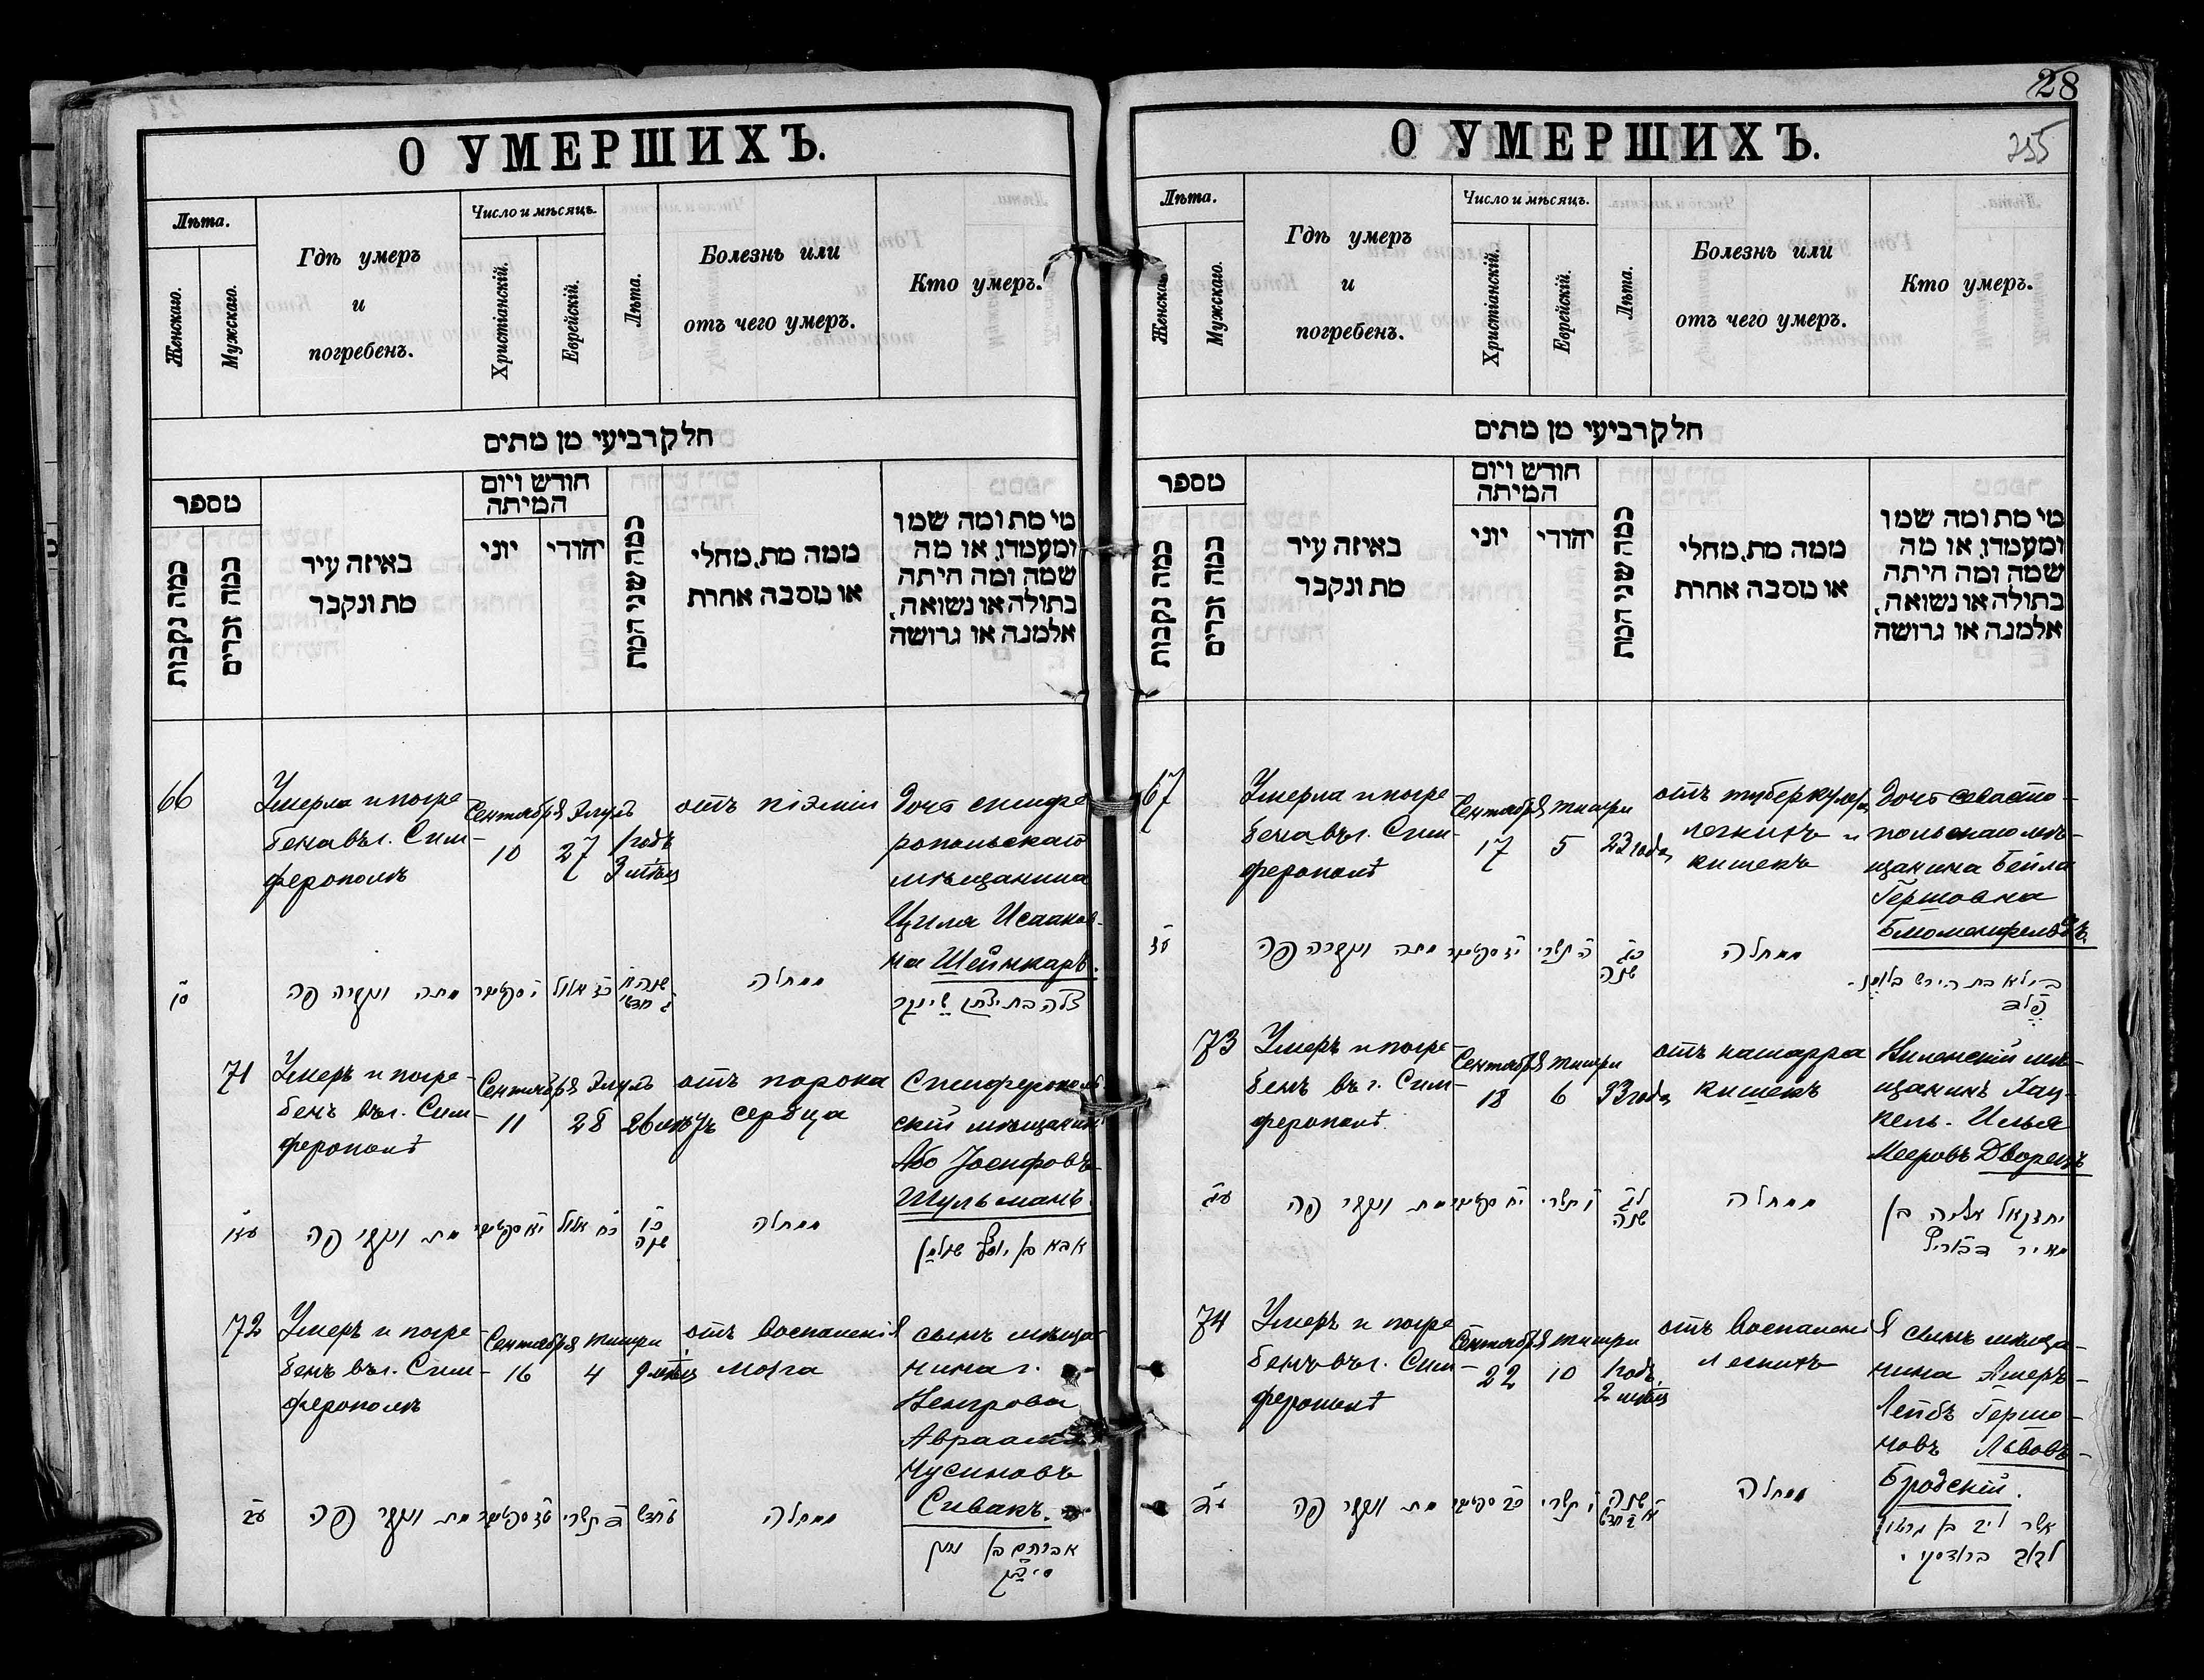 28
255
О УМЕРШИХЪ.
Лѣта.
Женскаго.
Мужскаго.
Гдѣ умеръ
и
погребенъ.
Число и мѣсяцъ.
Христіанскій.
Еврейскій.
Лѣта.
Болезнь или
отъ чего умеръ.
Кто умеръ.
חלק רביעי מן מתים
מספר
כמה נקבות
כמה זכרים
באיזה עיר
מת ונקבר
חודש ויום
המיתה
יוני
יהודי
כמה שני המת
ממה מת, מחלי
או מסבה אחרת
מי מת ומה שמו
ומעמדו, או מה
שמה ומה היתה
בתולה או נשואה,
אלמנה או גרושה
66
Умерла и погре-
бена въ г. Сим-
ферополѣ
Сентября Элулъ
10
27
1 годъ
3 мѣсяц
отъ піэміи
дочь симфе
ропольскаго
мѣщанина
Циля Исааков-
на Шейнкаръ.
סו
מתה ונקברה פה
י סקטעמבר
כז אלול
שנה א
ג חדשי
ממחלה
צלה בת יצחק שינקר
71
Умеръ и погре-
бенъ въ г. Сим-
ферополѣ
Сентября Элулъ
11
28
26 лѣтъ
отъ порока
сердца
Симферополь-
скій мѣщанинъ
Або Іосифовъ
Шульманъ.
עא
מת ונקבר פה
יא סקטעמבר
כח אלול
כו
שנה
ממחלה
אבא בן יוסף שולמן
72
Умеръ и погре-
бенъ въ г. Сим-
ферополѣ
Сентября Тишри
16
4
9 мѣсяц
отъ воспаленія
мозга
сынъ мѣща-
нина г.
Авраамъ
Нусиновъ
Сивакъ.
עב
מת ונקבר פה
טז סקטעמבר
ד תשרי
ט חדש
ממחלה
אברהם בן נוסן
סיבק
О УМЕРШИХЪ.
Лѣта.
Женскаго.
Мужскаго.
Гдѣ умеръ
и
погребенъ.
Число и мѣсяцъ.
Христіанскій.
Еврейскій.
Лѣта.
Болезнь или
отъ чего умеръ.
Кто умеръ.
חלק רביעי מן מתים
מספר
כמה נקבות
כמה זכרים
באיזה עיר
מת ונקבר
חודש ויום
המיתה
יוני
יהודי
כמה שני המת
ממה מת, מחלי
או מסבה אחרת
מי מת ומה שמו
ומעמדו, או מה
שמה ומה היתה
בתולה או נשואה,
אלמנה או גרושה
67
Умерла и погре-
бена въ г. Сим-
ферополѣ
Сентября Тишри
17
5
23 года
отъ туберкулеза
легкихъ и
кишекъ
дочь севасто-
польскаго мѣ-
щанина Бейла
Гершовна
Блюменфельдъ.
סז
מתה ונקברה פה
יז סקטעמבר
ה תשרי
כג
שנה
ממחלה
ביילא בת הירש בלומן-
פלד
73
Умеръ и погре-
бенъ въ г. Сим-
ферополѣ
Сентября Тишри
18
6
33 года
отъ катарра
кишекъ
Виленскій мѣ-
щанинъ Хац-
кель-Илья
Мееровъ Дворецъ
עג
מת ונקבר פה
יח סקטעמבר
ו תשרי
לג
שנה
ממחלה
יחזקאל אליה בן
מאיר דבוריץ
74
Умеръ и погре
бенъ въ г. Сим-
ферополѣ
Сентября Тишри
22
10
1 годъ,
2 мѣсяц
отъ воспаленія
легкихъ
сынъ мѣща-
нина Ашеръ-
Лейбъ Гершо-
новъ Львовъ-
Бродскій.
עד
מת ונקבר פה
כב סקטעמבר
י תשרי
שנה
א ב חדש
ממחלה
אשר ליב בן גרשון
לבוב ברודסקי